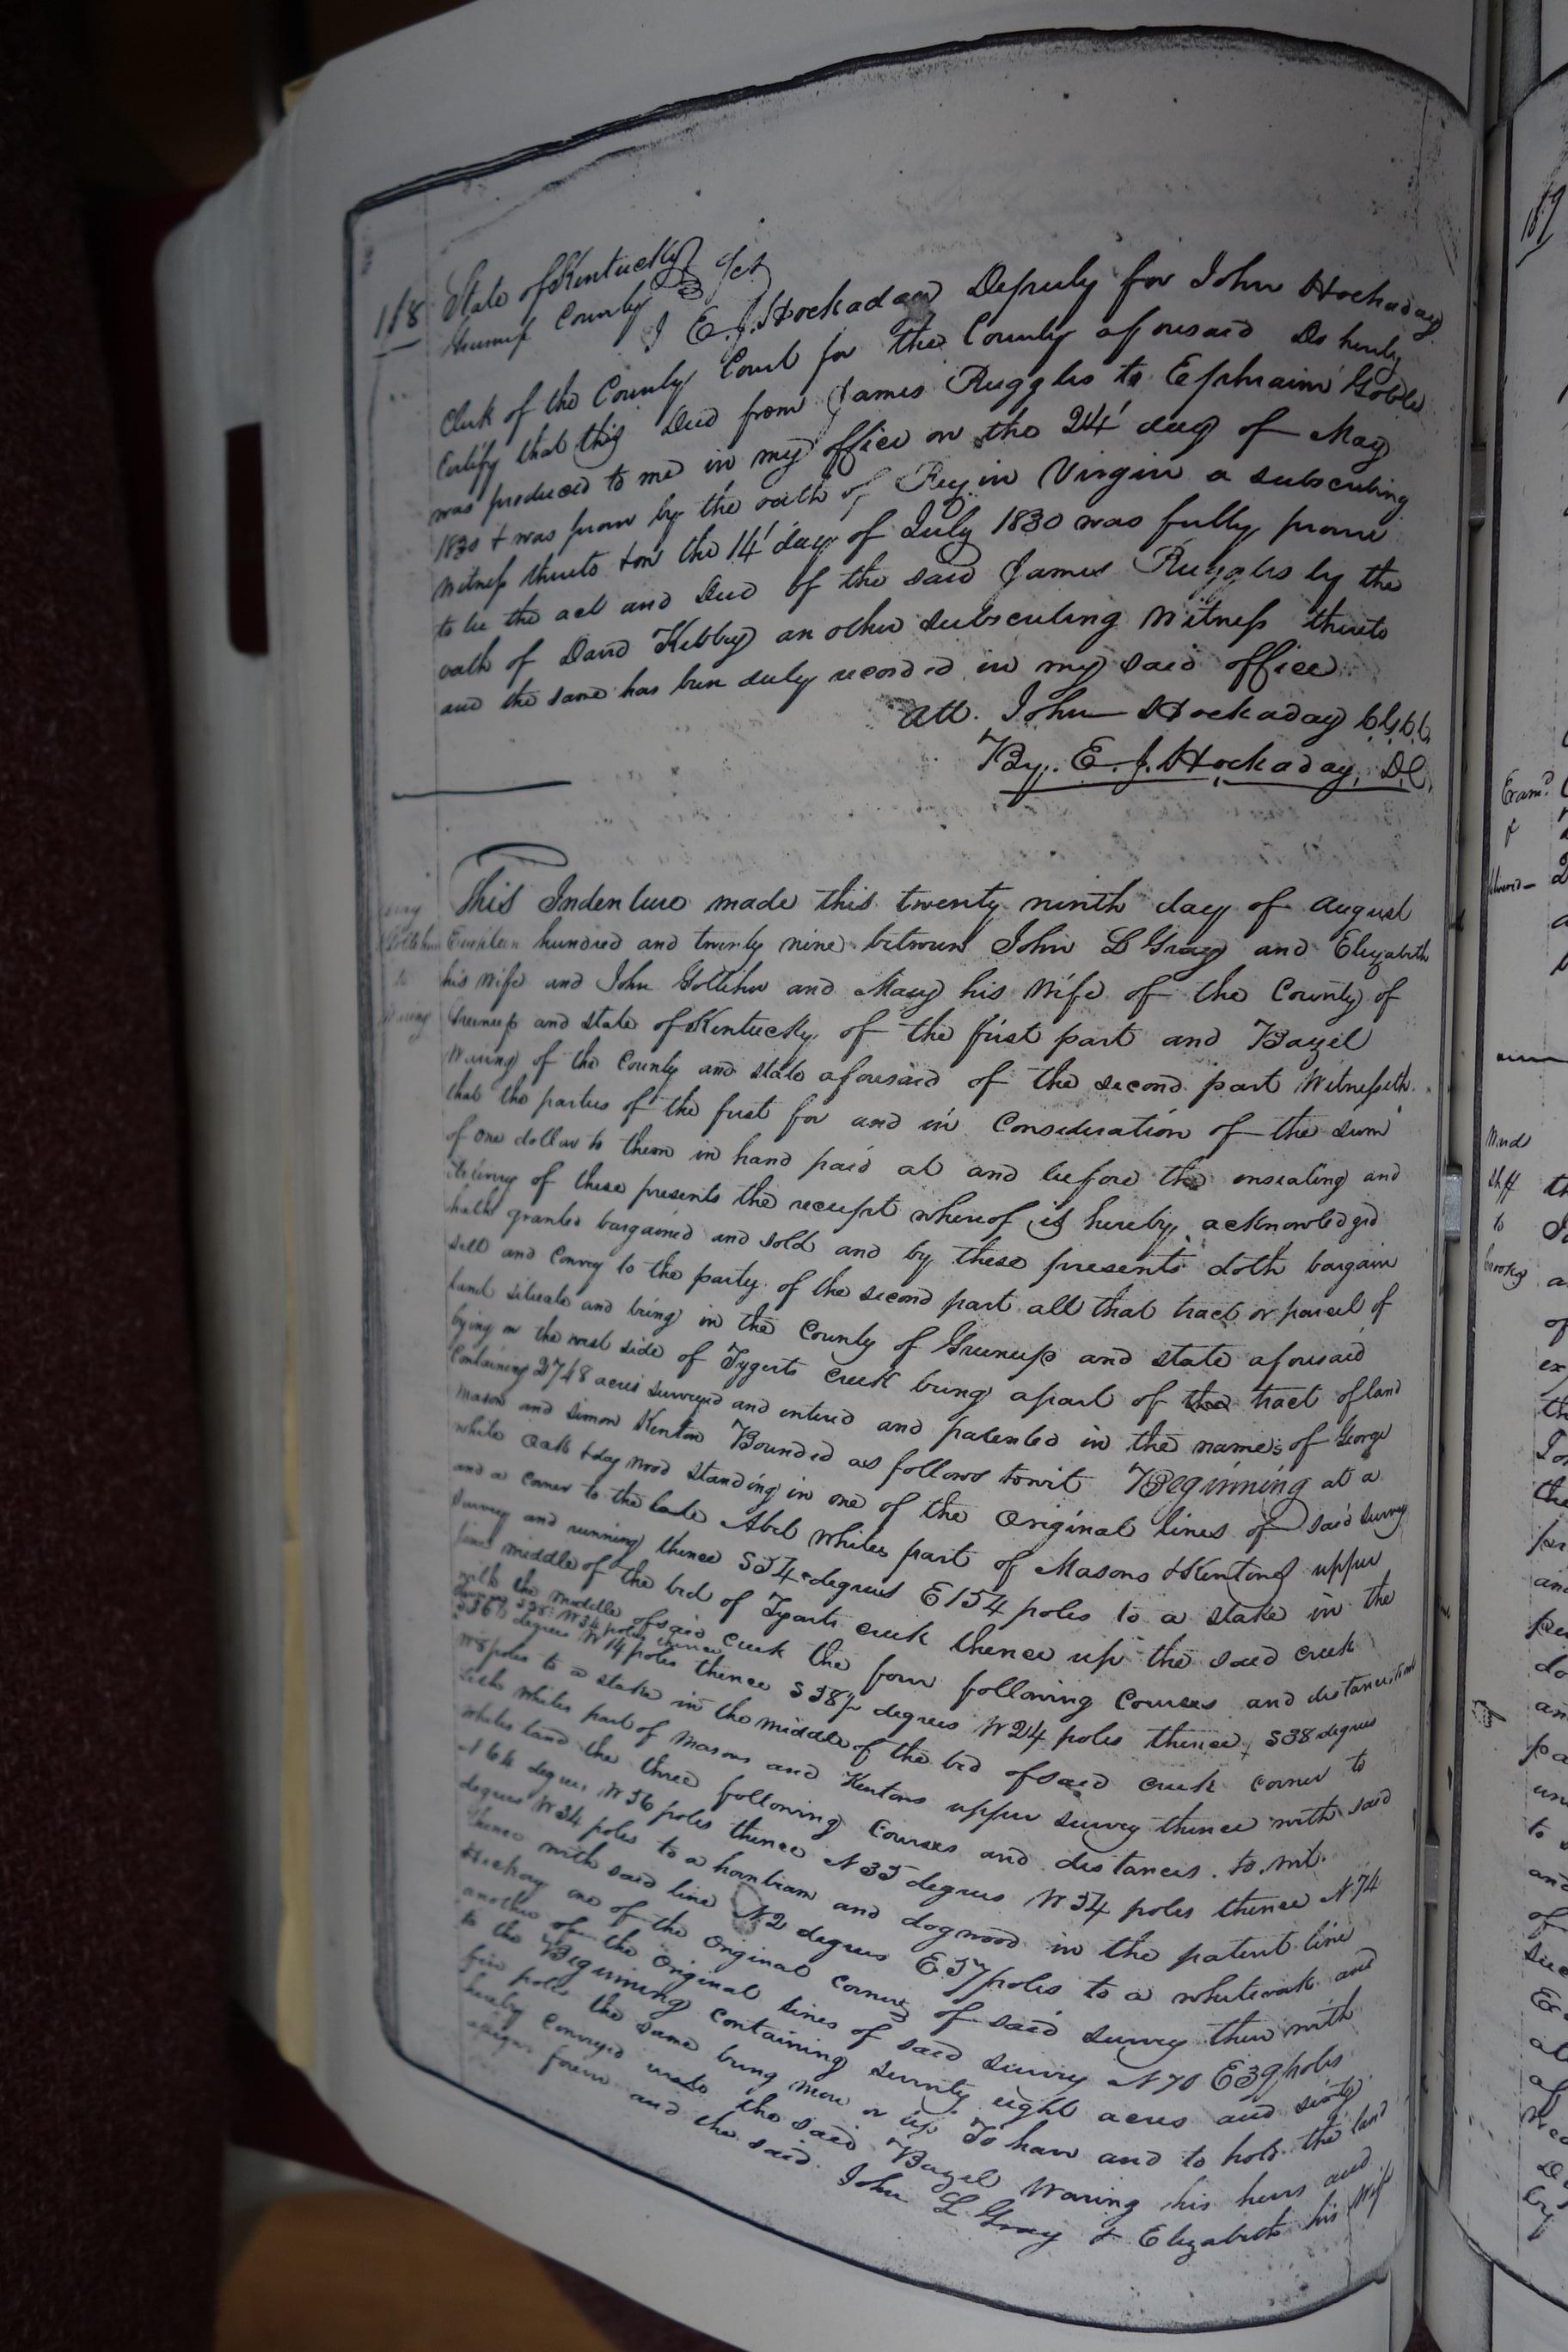 118
State of Kentucky
Greenup County Sct
I E. J. Hockaday Deputy for John Hockaday
Clerk of the County Court for the County aforesaid Do hereby
Certify that this Deed from James Ruggles to Ephraim Goble
was produced to me in my office on the 24' day of May
1830 & was prown by the oath of Virgin a subscribing
witness thereto & on the 14' day of July 1830 was fully prown
to be the act and Deed of the said James Ruggles by the
oath of David Kibbey an other subscribing Witness thereto
and the same has been duly recorded in my said office
Att. John Hockaday
By. E. J. Hockaday, D.C.
This Indenture made this twenty ninth day of August
Eighteen hundred and twenty nine between John L Gray and Elizabeth
his Wife and John Gollihu and Mary his Wife of the County of
Greenup and State of Kentucky of the first part and Bazil
Waring of the County and State aforesaid of the second part Witnesseth
that the parties of the first for and in Consideration of the Sum
of one dollar to them in hand paid at and before the ensealing and
delivery of these presents the receipt whereof is hereby acknowledged
hath granted bargained and sold and by these presents doth bargain
sell and Convey to the party of the second part all that tract or parcel of
land situate and being in the County of Greenup and State aforesaid
lying on the west side of Tygerts Creek being a part of the tract of land
Containing 3748 acres surveyed and entered and patented in the names of George
Mason and Simon Kenton Bounded as follows towit Beginning at a
white Oak & dog wood standing in one of the Original lines of said survey
and a corner to the Abel Whites part of Masons & Kentons upper
survey and running thence S54 degrees E154 poles to a stake in the
middle of the bed of Tygarts creek thence up the said creek
with the middle of said Creek the four following Courses and distances
S38 W34 poles thence
S36 degrees W14 poles thence S38½ degrees W24 poles thence S38 degrees
W8 poles to a stake in the middle of the bed of said creek corner to
Whites part of Masons and Kentons upper survey thence with said
Whites land the three following Courses and distances. to wit.
N64 degrees W56 poles thence N35 degrees W54 poles thence N74
degrees W34 poles to a hornbeam and dogwood in the patent line
thence with said line N2 degrees E57 poles to a white oak and
Hickory one of the Original corners of said survey then with
another of the Original lines of said survey N70 E39 poles
to the Beginning containing seventy eight acres and sixty
five poles the same being more or less To have and to hold the land
hereby conveyed unto the said Bazil Waring his heirs and
assigns forever and the said John L Gray & Elizabeth his Wife